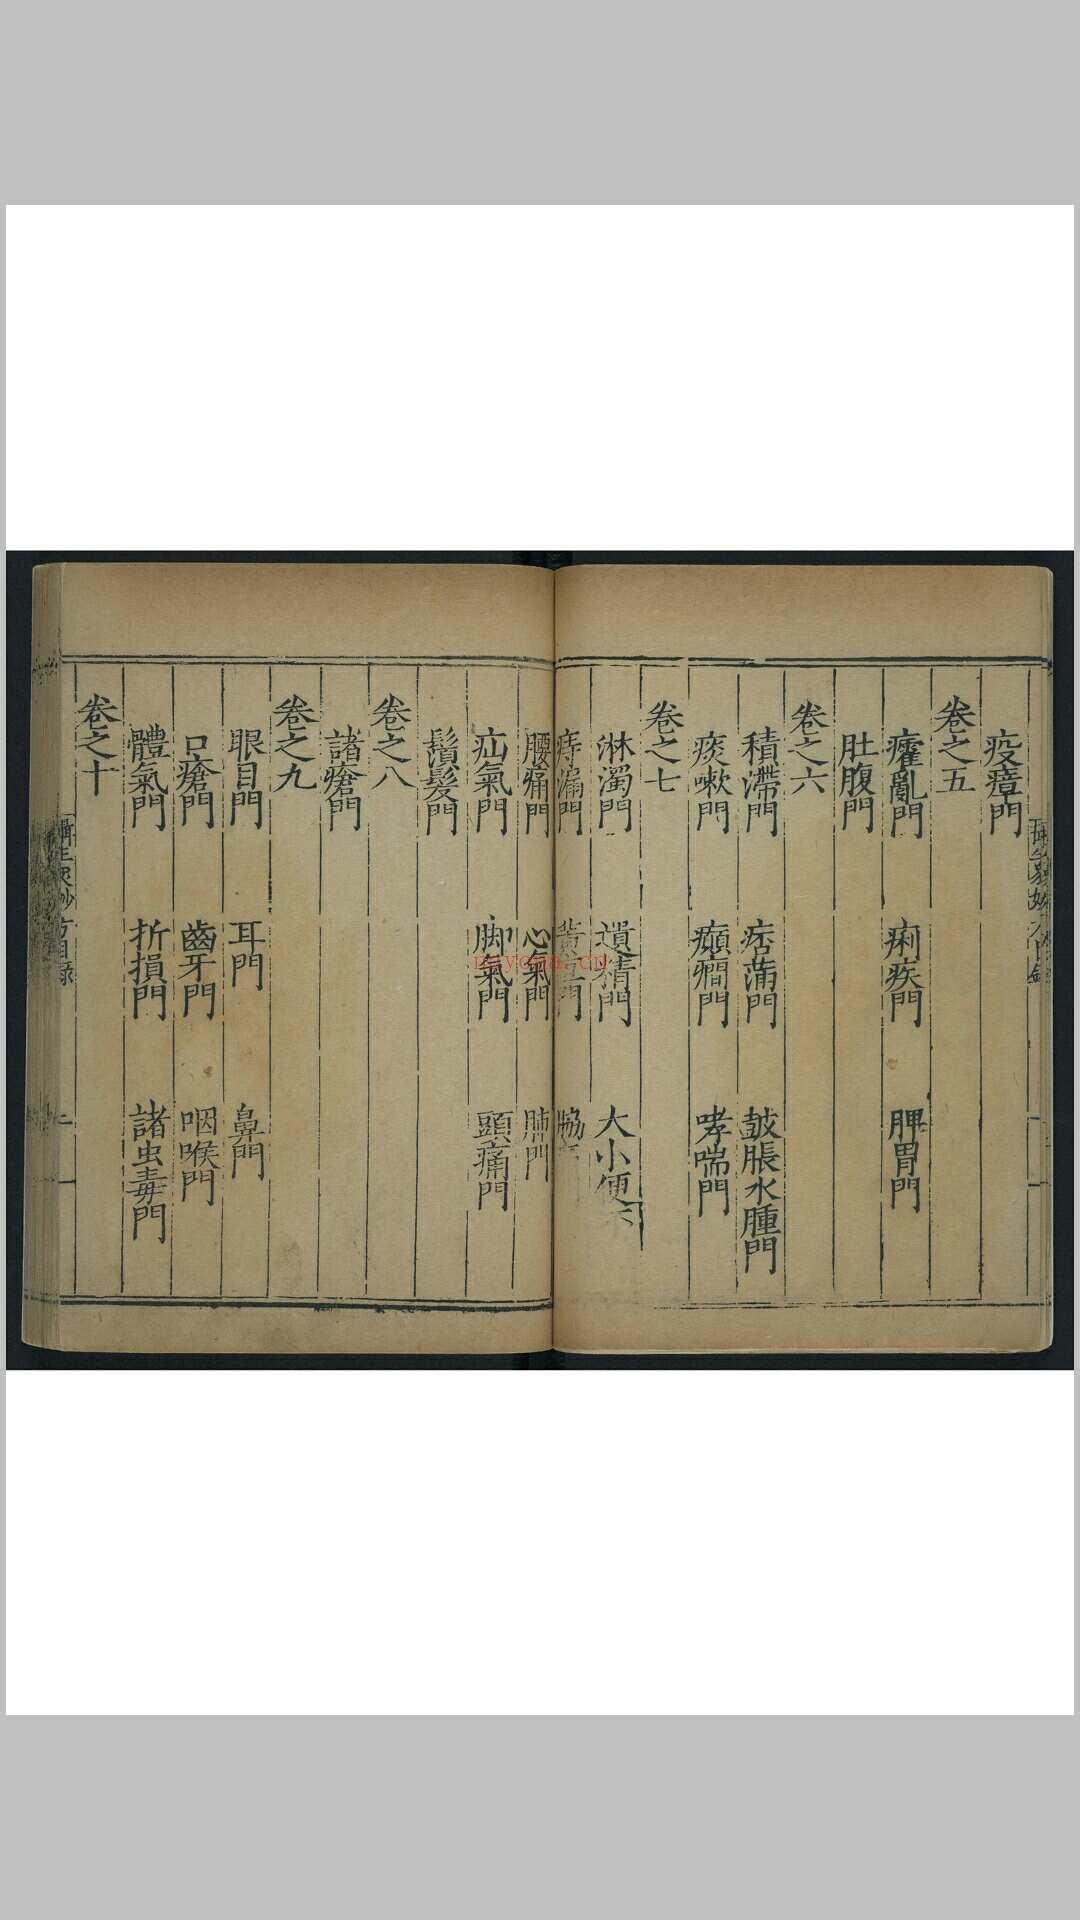 疫瘴門
卷之五
癨亂門 痢疾門 脾胃門
肚腹門
卷之六
積滯門 痞滿門 皷脹水腫門
痰嗽門 癲癎門 哮喘門
卷之七
淋濁門 遺精門 大小便
痔漏門 黄疸門 脇
腰痛門 心氣門 肺門
疝氣門 脚氣門 頭痛門
鬚髮門
卷之八
諸瘡門
卷之九
眼目門 耳門 鼻門
口瘡門 齒牙門 咽喉門
體氣門 折損門 諸虫毒門
卷之十
攝生眾妙方目錄
nayona.cn